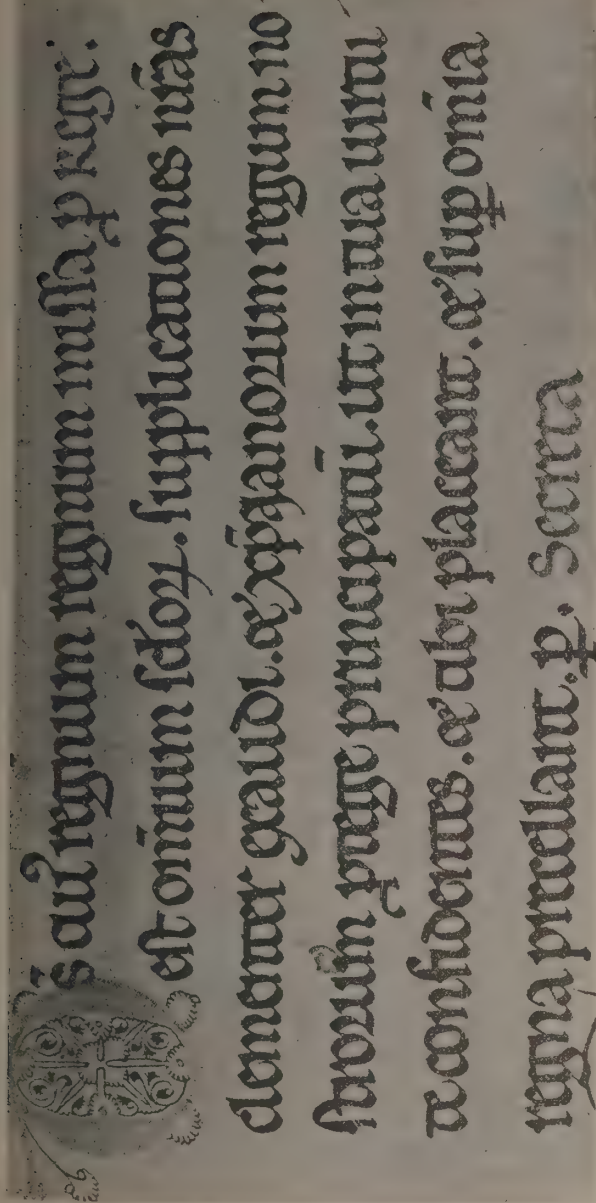 Ds̄ cui' regnum regnum missa ꝓ rege.
est om̄ium seclorꝝ. supplicationes nr̄as
clementer exaudi. & xp̄ianorum regum no
strorum ꝓtege principatū. ut in tua uirtu
te confidentes. & tibi placeant. & suꝑ om̄ia
regna precellant. ꝑ. Secreta